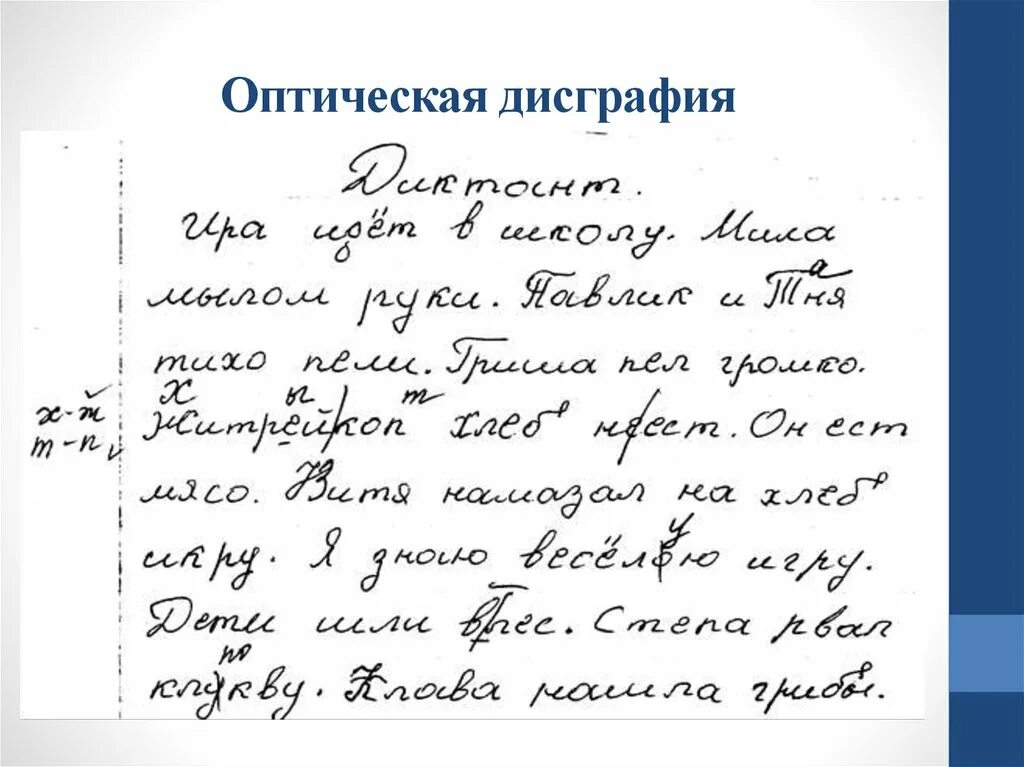 Оптическая дисграфия
Диктант.
Ира идёт в школу. Мила
мылом руки. Павлик и Тня
а
тихо пели. Гриша пел громко.
х ы т
х-ж
т-п
Житрей коп хлеб не ест. Он ест
мясо. Витя намазал на хлеб
у
икру. Я знаю весёлою игру.
Дети шли в лес. Степа рвал
по
клукву. Клава нашла грибы.